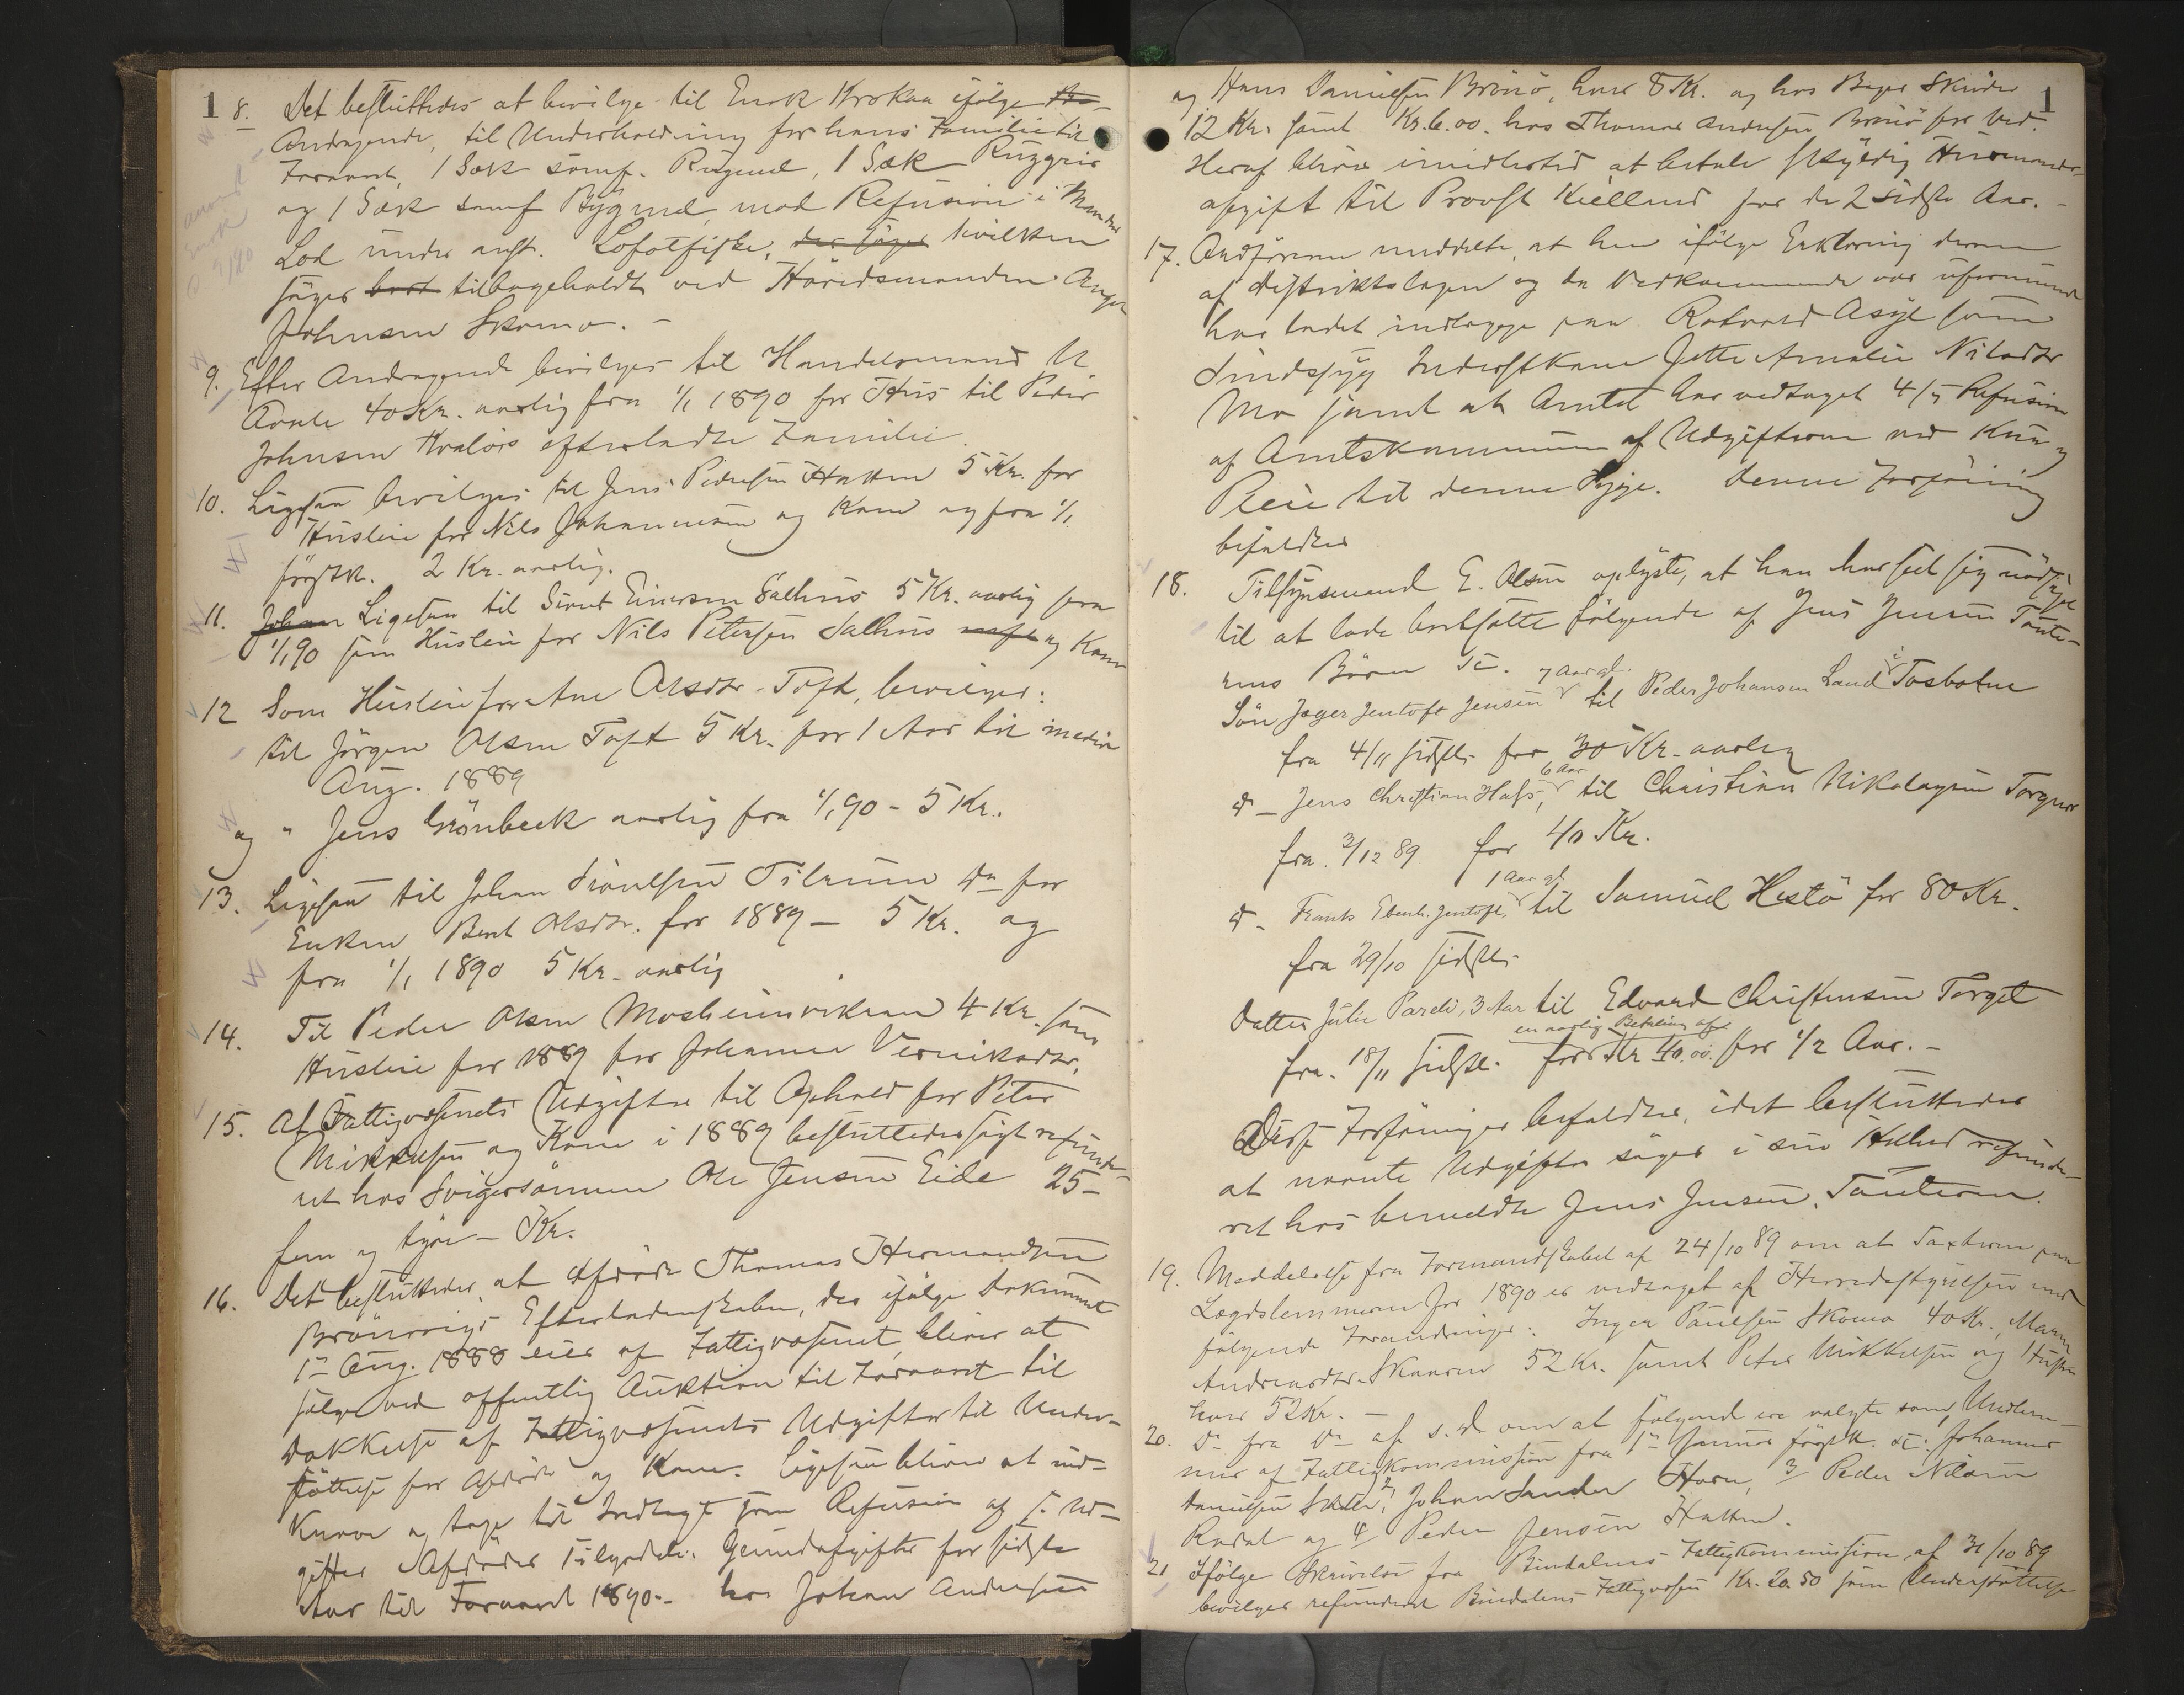 1
8. Det besluttedes at bevilge til Enok Krokaa ifølge
Andragende, til Underholdning for hans Familie til
Foraaret, 1 Sæk sams. Rugmel, 1 Sæk Ruggris
og 1 Sæk sams Bygmel, mod Refusion i Mandens
Lod under anst. Lofotfiske, der søges hvilken
søges bort tilbageholdt ved Høvedsmanden
Johnsen Skomo. –
9. Efter Andragende bevilges til Handelsmand M
Aarle 40 Kr. aarlig fra 1/1 1890 for Hus til Peder
Johnsen Kvaløs efterladte Familie.
10. Ligesaa bevilges til Jens Pedersen Hatten 5 Kr. for
Husleie for Nils Johannesen og Kone og fra 1/1
førstk. 2 Kr. aarlig.
11. Johan Ligesaa til Sivert Einersen Salhus 5 Kr. aarlig fra
1/1 90 som Husleie for Nils Petersen Salhus og Kone
12 Som Husleie for Ane Olsdtr. Toft, bevilges:
til Jørgen Olsen Toft 5 Kr. for 1 Aar til medio
Aug. 1889
og " Jens Grønbeck aarlig fra 1/1 90 – 5 Kr.
13. Ligesaa til Johan Paulsen Tilrum Do for
Enken Berit Olsdtr. for 1889 – 5 Kr. og
fra 1/1 1890 5 Kr. aarlig
14. Til Peder Olsen Mosheimvikran 4 Kr. som
Husleie for 1889 for Johanna Veronikadtr.
15. Af Fattigvæsenets Udgifter til Ophold for Peter
Mikkelsen og Kone i 1889 besluttedes søgt refunde-
ret hos Svigersønnen Ole Jensen Eide 25 –
fem og tyve – Kr.
16. Det besluttedes, at afdøde Thomas Hermandsen
Brønnøigs Efterladenskaber, der ifølge Dokument
1ste Aug. 1888 eies af Fattigvæsenet, bliver at
sælge ved offentlig Auktion til Foraaret til
Dækkelse af Fattigvæsenets Udgifter til Under-
støttelse for Afdøde og Kone. Ligesaa bliver at ind-
kræve og tage til Indtægt som Refusion af s. Ud-
gifter Afdødes tilgodeh. Grundafgifter for sidste
Aar til Foraaret 1890 – hos Johan Andersen
1
og Hans Danielsen Brønø, hver 8 Kr. og hos Bager Skinder
12 Kr. samt Kr. 6.00. hos Thomas Andersen Brønø for Ved.
Heraf bliver imidlertid at betale skyldig Husmands-
afgift til Provst Kielland for de 2 sidste Aar. –
17. Ordføreren meddelte, at han ifølge Erklæring derom
af Distriktslægen og da Vedkommende var uformuende
har ladet indlægge paa Rotvold Asyl som
Sindssyg Inderstkone Jette Amalie Nilsdtr
Mo samt at Amtet har vedtaget 4/5 Refusion
af Amtskommunen af Udgifterne ved Kur og
Pleie til denne Syge. Denne Forføining
bifaldtes
18. Tilsynsmand E. Olsen oplyste, at han har seet sig nødsaget
til at lade bortsætte følgende af Jens Jensen Tøute-
rens Børn Sc.
7 Aar gl.
Søn Jæger Jentoft Jensen til Peder Johansen Laud i Tosbotne
fra 4/11 sidstl. for 30 Kr. aarlig
6 Aar
do – Jens Christian Hals, til Christian Nikolaysen Torgnes
fra 3/12 89 for 40 Kr.
1 Aar gl.
do – Frants Ebenh. Jentoft, til Samuel Hestø for 80 Kr.
fra 29/10 sidstl.
Datter Julie Pareli, 3 Aar til Edvard Christensen Torget
en aarlig Betaling af
fra 18/11 sidstl. for Kr 40.00. for 1/2 Aar. –
Disse Forføininger bifaldtes, idet besluttedes
at nævnte Udgifter søges i sin Helhed refunde-
ret hos bemeldte Jens Jensen, Tøuteren.
19. Meddelelse fra Formandskabet af 24/10 89 om at Taxterne paa
Lægdslemmerne for 1890 er vedtaget af Herredsstyrelsen med
følgende Forandringer: Inger Paulsen Skomo 40 Kr., Maren
Andreasdtr. Skaaren 52 Kr. samt Peter Mikkelsen og Hustru
hver 52 Kr. –
20. Do fra Do af s. D. om at følgende ere valgte som Medlem-
mer af Fattigkommissionen fra 1ste Januar førstk. Sc: Johannes
Danielsen Sæter, 2/ Johan Sander Horn, 3/ Peder Nilsen
Rodal og 4/ Peder Jensen Hatten.
21 Ifølge Skrivelse fra Bindalens Fattigkommission af 31/10 89
bevilges refunderet Bindalens Fattigvæsen Kr. 20.50 som Understøttelse